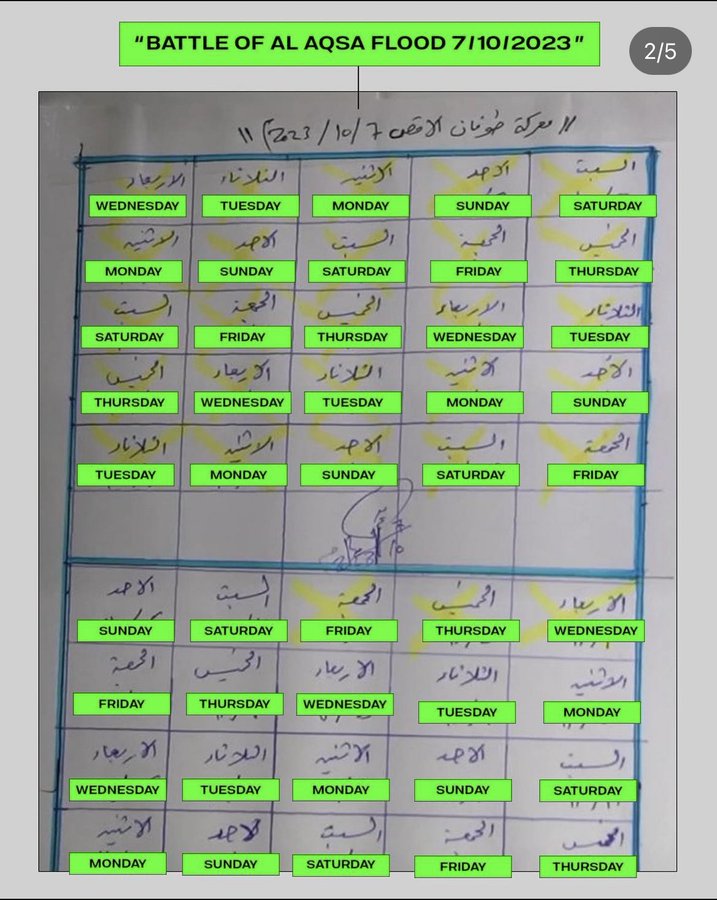 "BATTLE OF AL AQSA FLOOD 7/10/2023"
2/5
"معركة طوفان الاقصى 7/10/2023"
السبت الاحد الاثنين الثلاثاء الاربعاء
WEDNESDAY TUESDAY MONDAY SUNDAY SATURDAY
الخميس الجمعة السبت الاحد الاثنين
MONDAY SUNDAY SATURDAY FRIDAY THURSDAY
الثلاثاء الاربعاء الخميس الجمعة السبت
SATURDAY FRIDAY THURSDAY WEDNESDAY TUESDAY
الاحد الاثنين الثلاثاء الاربعاء الخميس
THURSDAY WEDNESDAY TUESDAY MONDAY SUNDAY
الجمعة السبت الاحد الاثنين الثلاثاء
TUESDAY MONDAY SUNDAY SATURDAY FRIDAY
الاربعاء الخميس الجمعة السبت الاحد
SUNDAY SATURDAY FRIDAY THURSDAY WEDNESDAY
الاثنين الثلاثاء الاربعاء الخميس الجمعة
FRIDAY THURSDAY WEDNESDAY TUESDAY MONDAY
السبت الاحد الاثنين الثلاثاء الاربعاء
WEDNESDAY TUESDAY MONDAY SUNDAY SATURDAY
الخميس الجمعة السبت الاحد الاثنين
MONDAY SUNDAY SATURDAY FRIDAY THURSDAY